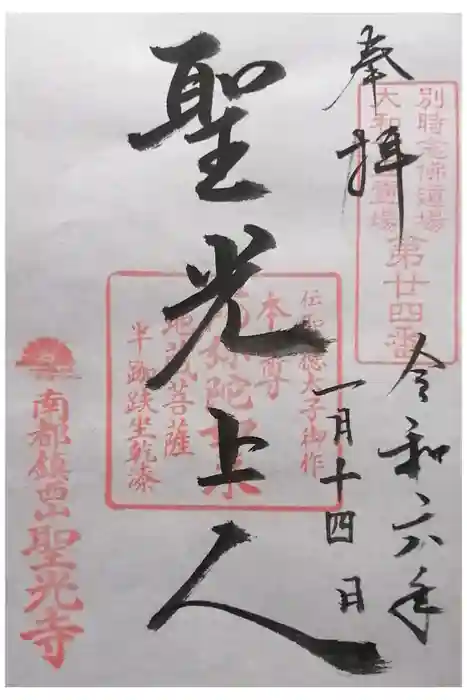 奉拝
別時念佛道場
大和
霊場
第廿四番
令和六年
一月十四日
聖光上人
伝聖徳太子御作
本尊
阿弥陀如来
地蔵菩薩
半跏趺坐乾漆
南都鎮西山
聖光寺